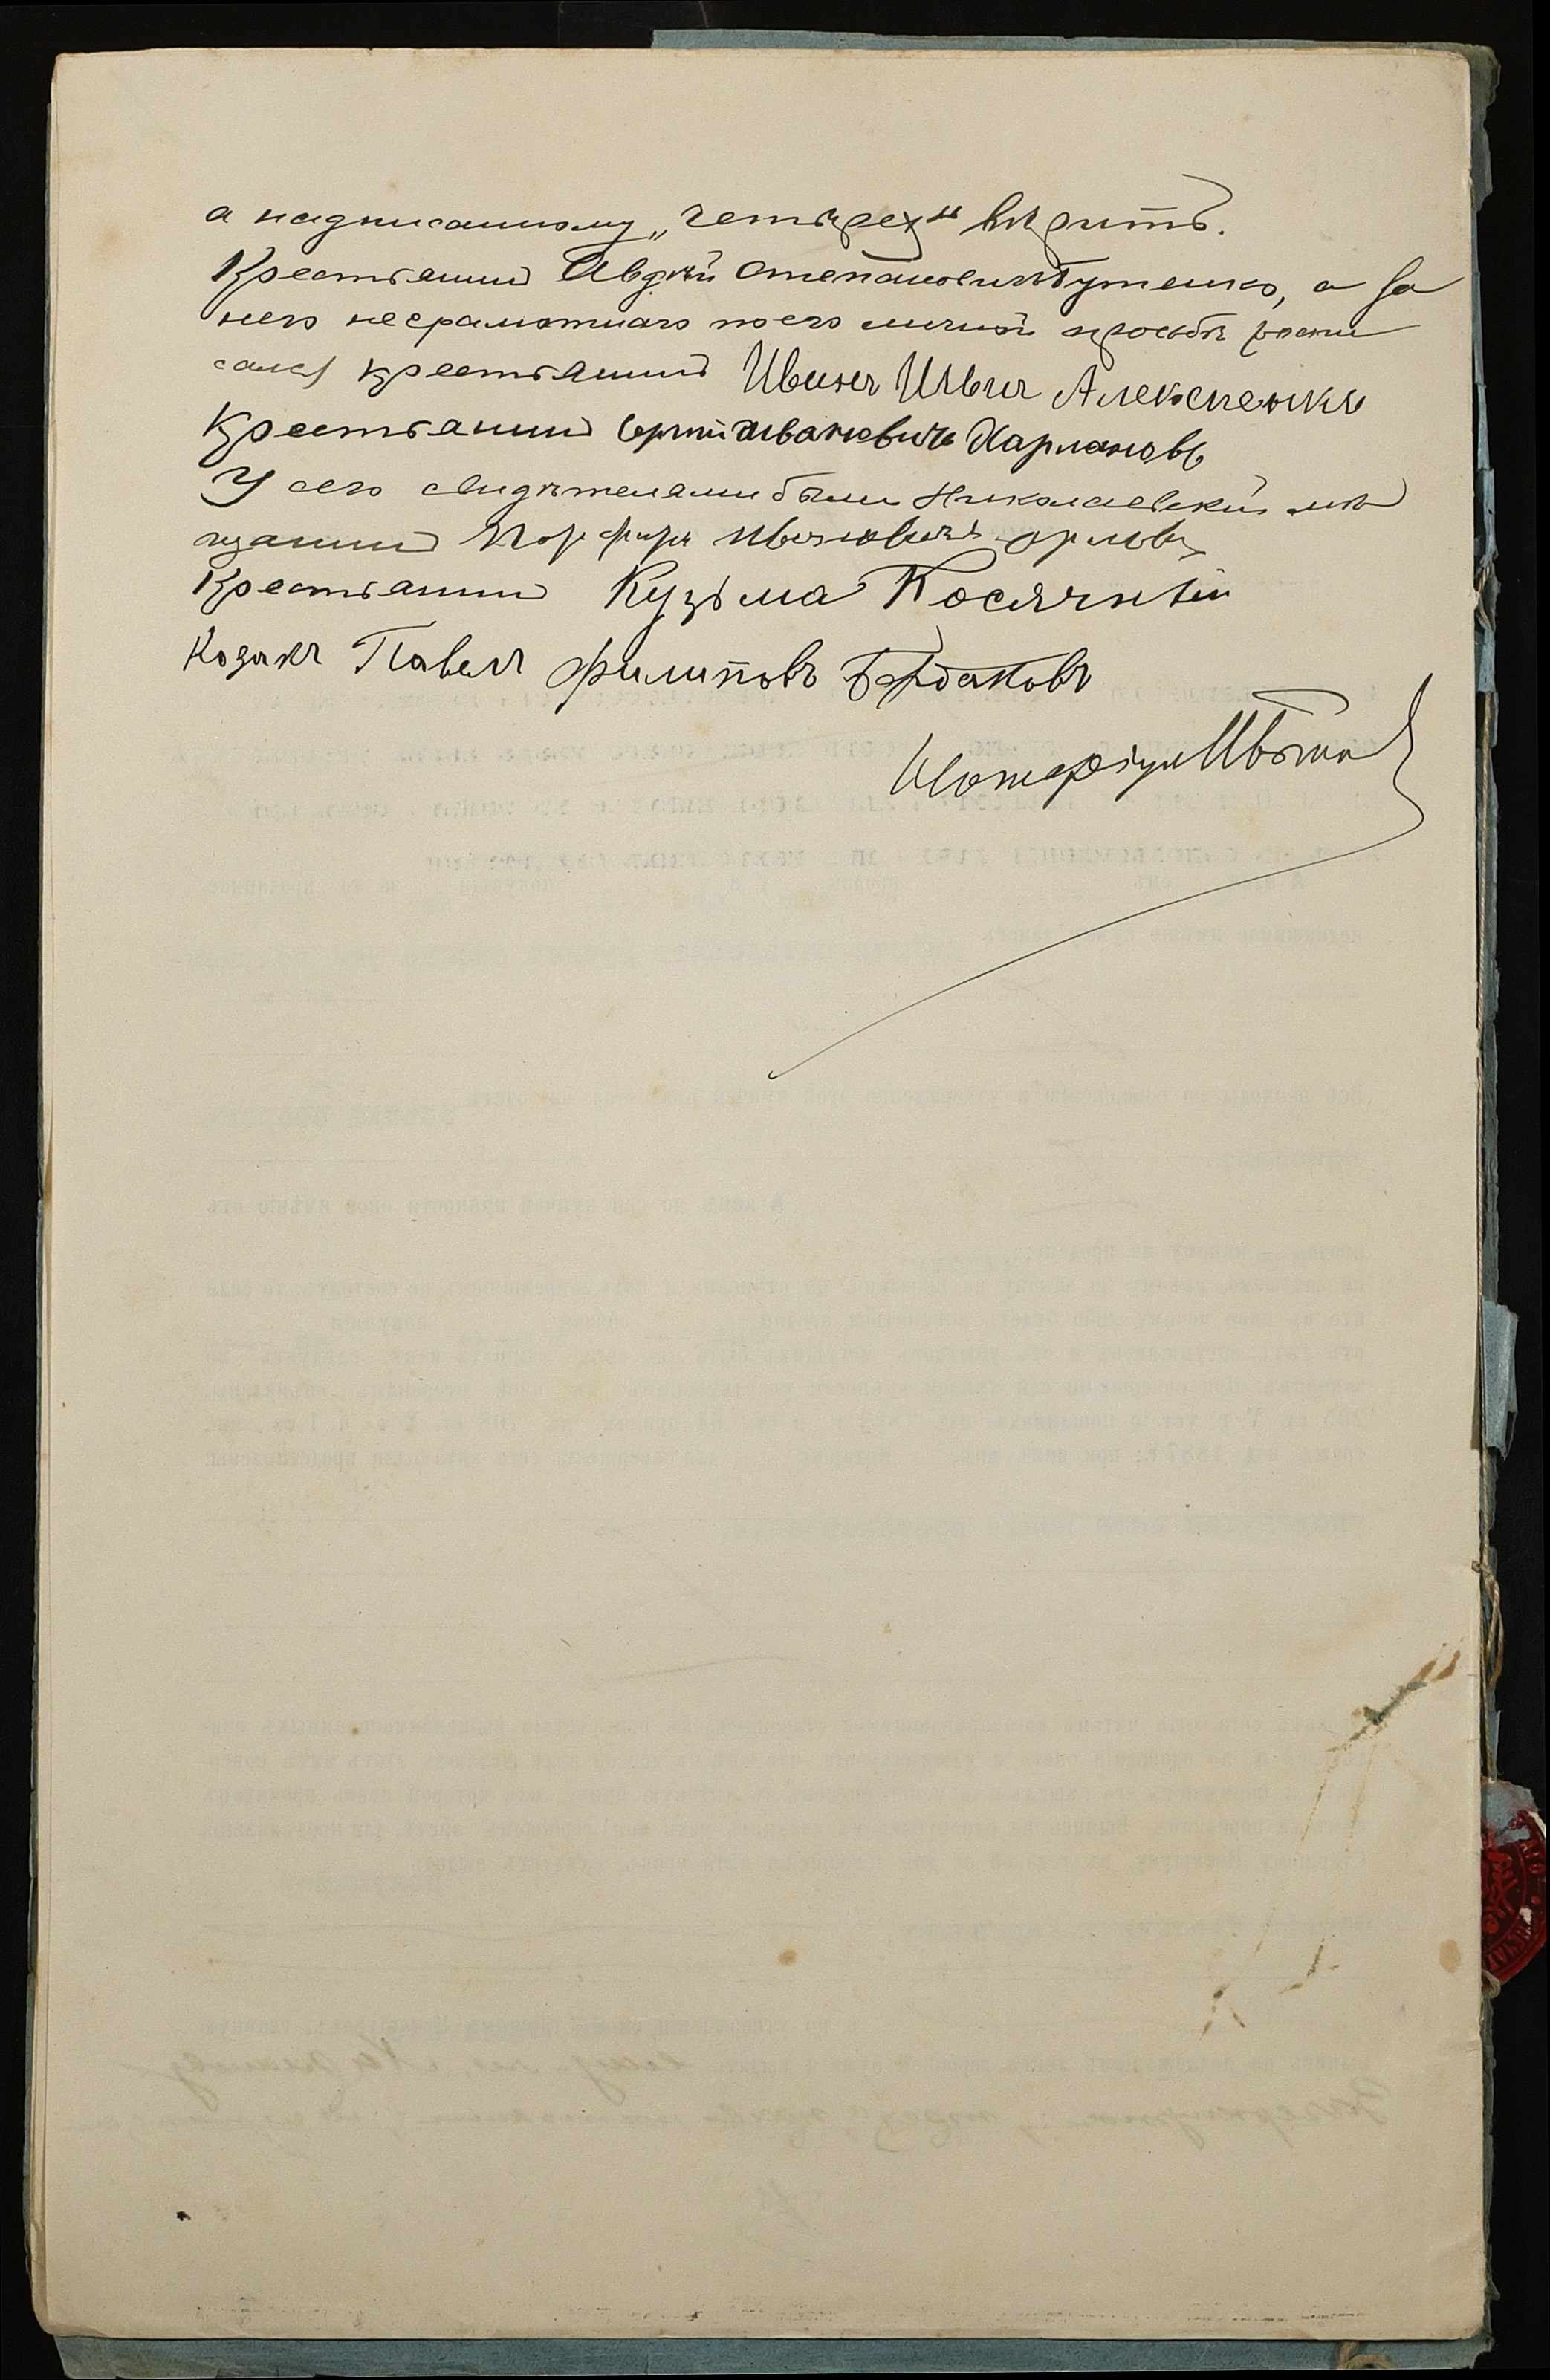 а надписанному „четырех“ вѣрить.
Крестьянинъ Авдѣй Степановичъ Бутенко, а за
него неграмотнаго по его личной просьбѣ роспи
сался крестьянинъ Иванъ Ильичъ Алексѣенко
Крестьянинъ Сергѣй Ивановичъ Харламовъ
У сего свидѣтелями были Николаевскій мѣ
щанинъ Порфиръ Ивановичъ Орловъ
Крестьянинъ Кузьма Косячный
Козакъ Павелъ Филиповъ
Нотаріусъ